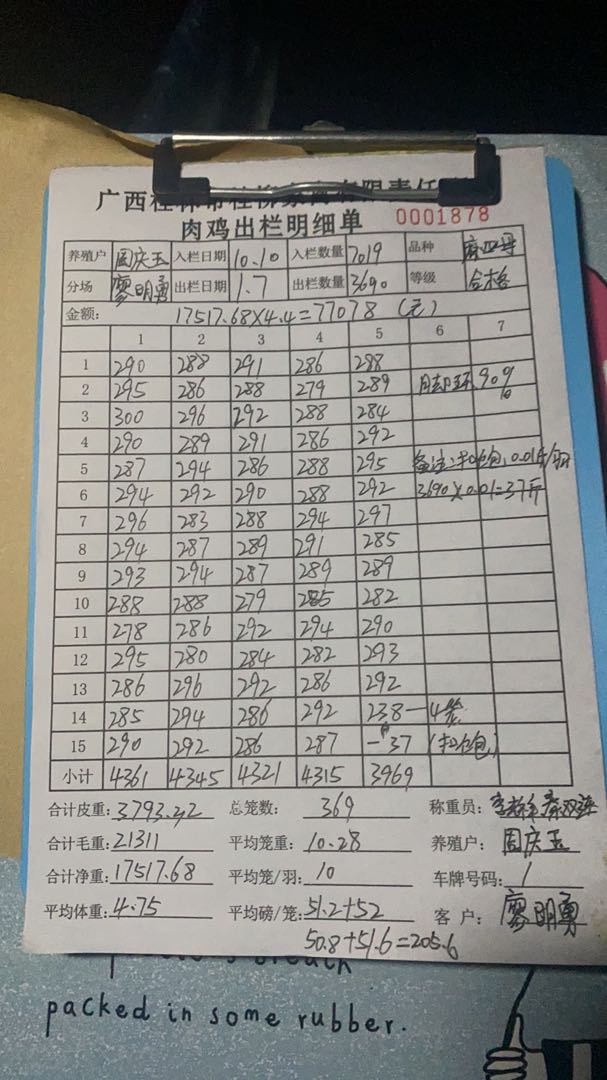 肉鸡出栏明细单 0001878
养殖户 周庆玉 入栏日期 10.10 入栏数量 7019 品种
分场 廖明勇 出栏日期 1.7 出栏数量 3690 等级 合格
金额: 17517.68×4.4=77078 (元)
1 2 3 4 5 6 7
1 290 288 291 286 288
2 295 286 288 279 289 90
3 300 296 292 288 284
4 290 289 291 286 292
5 287 294 286 288 295 备注:
6 294 292 290 288 292 3690×0.01=37斤
7 296 283 288 294 297
8 294 287 289 291 285
9 293 294 287 289 289
10 288 288 279 285 282
11 278 286 292 294 290
12 295 280 284 282 293
13 286 296 292 286 292
14 285 294 286 292 238-4笼
15 290 292 286 287 -37
小计 4361 4345 4321 4315 3969
合计皮重: 3793.32 总笼数: 369 称重员:
合计毛重: 21311 平均笼重: 10.28 养殖户: 周庆玉
合计净重: 17517.68 平均笼/羽: 10 车牌号码: 1
平均体重: 4.75 平均磅/笼: 51.2+52 客户: 廖明勇
50.8+51.6=205.6
packed in some rubber.